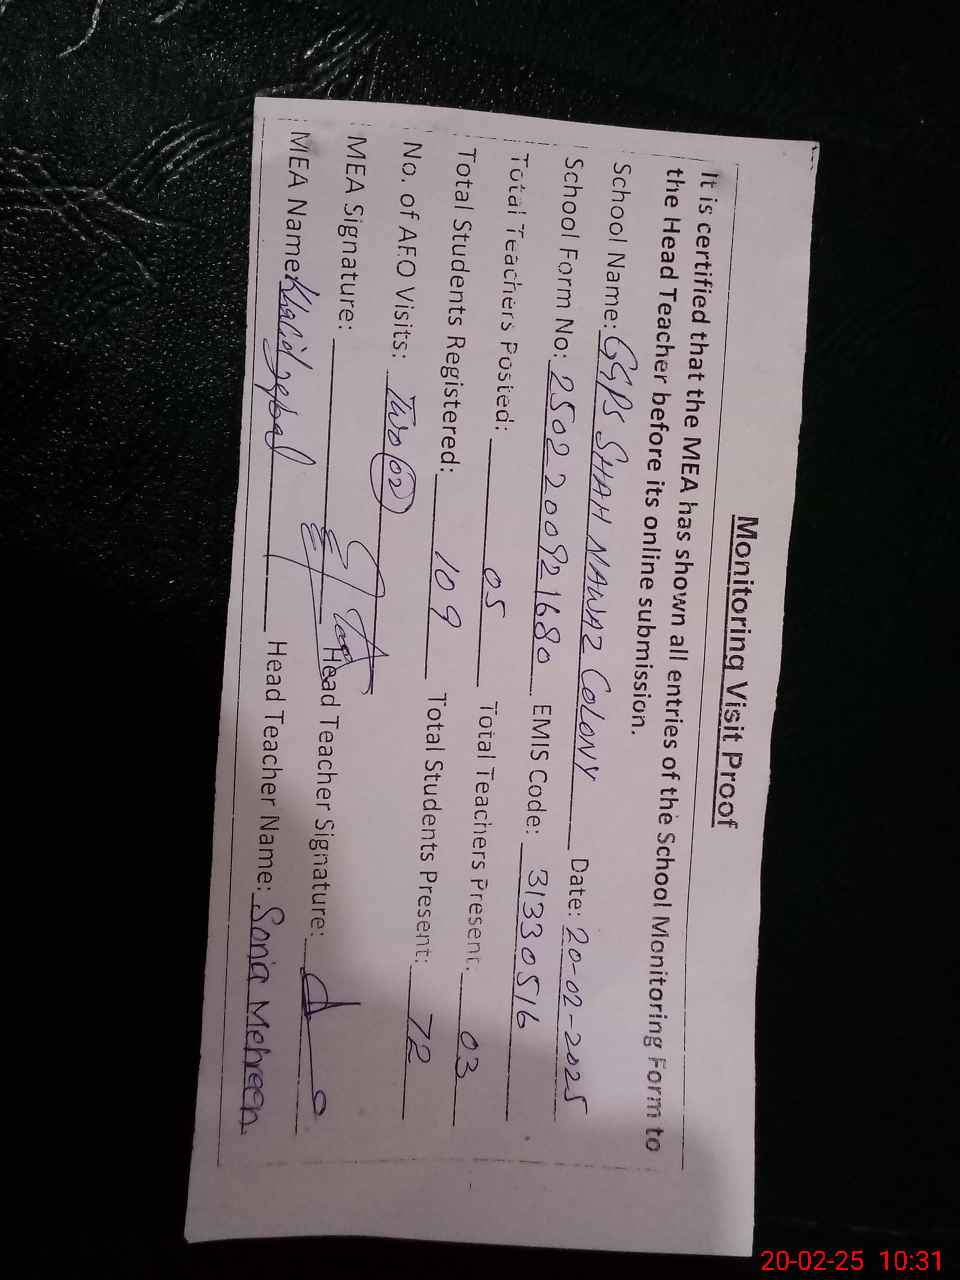 Monitoring Visit Proof
It is certified that the MEA has shown all entries of the School Monitoring Form to
the Head Teacher before its online submission.
School Name: GGPS SHAH NAWAZ COLONY Date: 20-02-2025
School Form No: 2502200921680 EMIS Code: 31330516
Total Teachers Posted: 05 Total Teachers Present: 03
Total Students Registered: 109 Total Students Present: 72
No. of AEO Visits: Two 02
MEA Signature: Head Teacher Signature:
MEA Name Khalid Iqbal Head Teacher Name: Sonia Mehreen
20-02-25 10:31